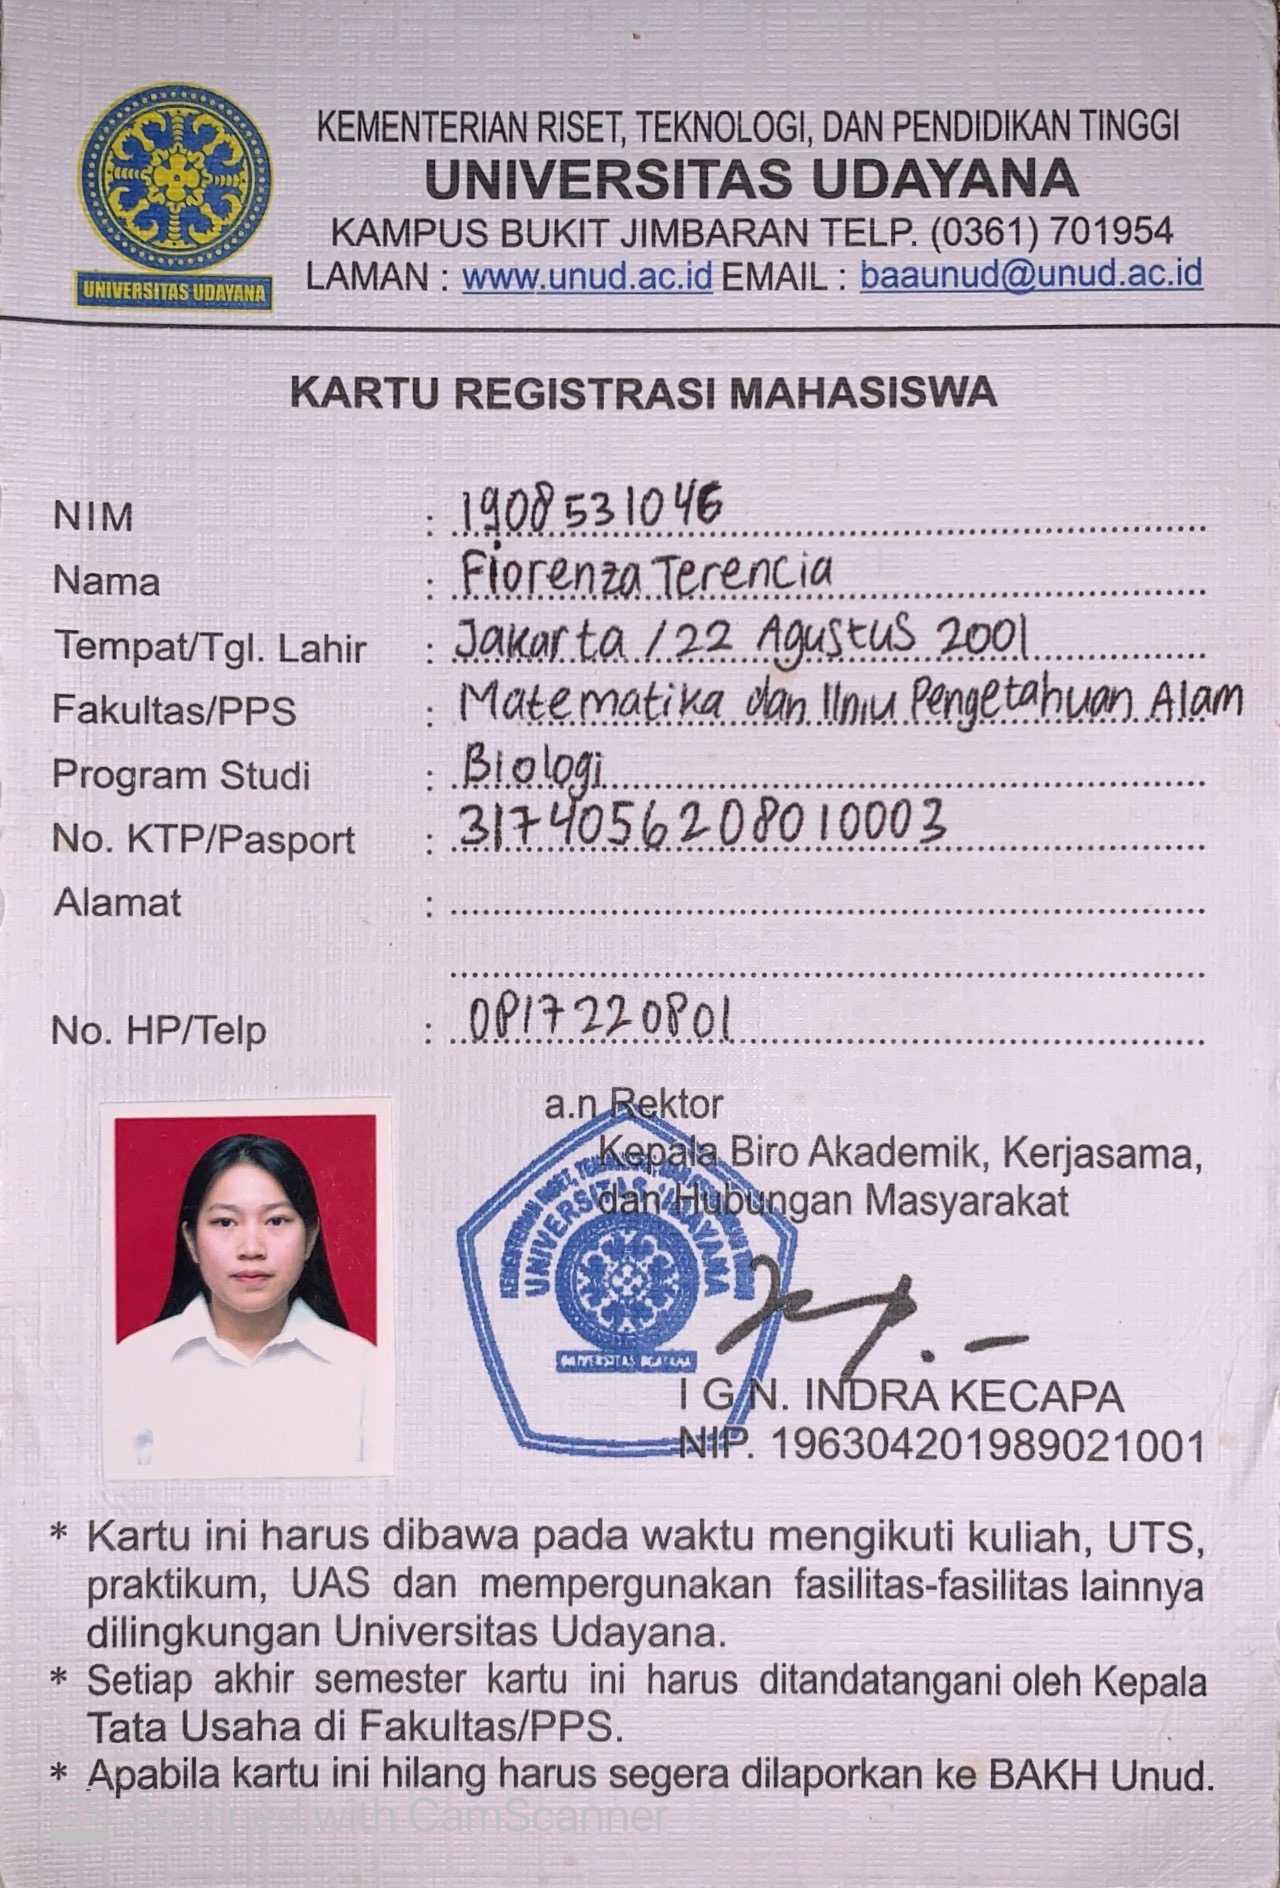 KEMENTERIAN RISET, TEKNOLOGI, DAN PENDIDIKAN TINGGI
UNIVERSITAS UDAYANA
KAMPUS BUKIT JIMBARAN TELP. (0361) 701954
LAMAN : www.unud.ac.id EMAIL : baaunud@unud.ac.id
UNIVERSITAS UDAYANA
KARTU REGISTRASI MAHASISWA
NIM : 1908531046
Nama : Fiorenza Terencia
Tempat/Tgl. Lahir : Jakarta / 22 Agustus 2001
Fakultas/PPS : Matematika dan Ilmu Pengetahuan Alam
Program Studi : Biologi
No. KTP/Pasport : 3174056208010003
Alamat :
No. HP/Telp : 0817220801
a.n Rektor
Kepala Biro Akademik, Kerjasama,
dan Hubungan Masyarakat
UNIVERSITAS UDAYANA
UNIVERSITAS UDAYANA
I G N. INDRA KECAPA
NIP. 196304201989021001
* Kartu ini harus dibawa pada waktu mengikuti kuliah, UTS,
praktikum, UAS dan mempergunakan fasilitas-fasilitas lainnya
dilingkungan Universitas Udayana.
* Setiap akhir semester kartu ini harus ditandatangani oleh Kepala
Tata Usaha di Fakultas/PPS.
* Apabila kartu ini hilang harus segera dilaporkan ke BAKH Unud.
Scanned with CamScanner